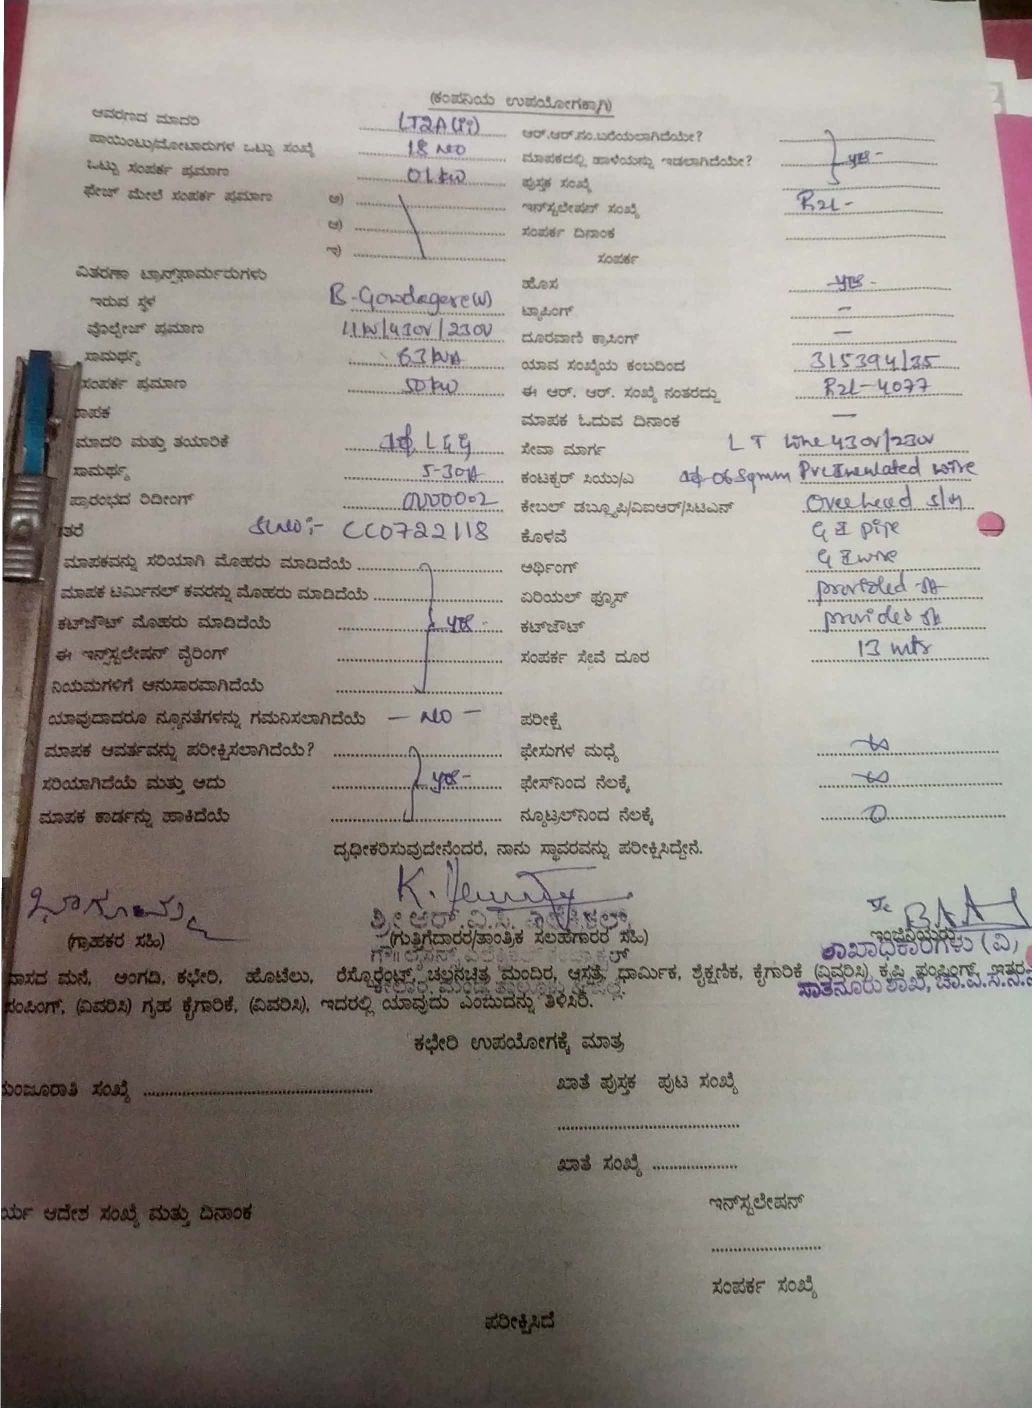 (ಕಂಪನಿಯ ಉಪಯೋಗಕ್ಕಾಗಿ)
ಆವರಣದ ಮಾದರಿ LT2A(ii) ಆರ್.ಆರ್.ನಂ.ಬರೆಯಲಾಗಿದೆಯೇ?
ಪಾಯಿಂಟು/ಮೋಟಾರುಗಳ ಒಟ್ಟು ಸಂಖ್ಯೆ 18 NO ಮಾಪಕದಲ್ಲಿ ಹಾಳೆಯನ್ನು ಇಡಲಾಗಿದೆಯೇ? yes-
ಒಟ್ಟು ಸಂಪರ್ಕ ಪ್ರಮಾಣ 01 kW ಪುಸ್ತಕ ಸಂಖ್ಯೆ
ಫೇಜ್ ಮೇಲೆ ಸಂಪರ್ಕ ಪ್ರಮಾಣ ಅ) ಇನ್‌ಸ್ಟಲೇಷನ್ ಸಂಖ್ಯೆ R2L-
ಆ) ಸಂಪರ್ಕ ದಿನಾಂಕ
ಇ) ಸಂಪರ್ಕ
ವಿತರಣಾ ಟ್ರಾನ್ಸ್‌ಫಾರ್ಮರುಗಳು ಹೊಸ yes-
ಇರುವ ಸ್ಥಳ B-Gowdagere(W) ಟ್ಯಾಪಿಂಗ್ —
ವೋಲ್ಟೇಜ್ ಪ್ರಮಾಣ 11kV/430V/230V ದೂರವಾಣಿ ಕ್ರಾಸಿಂಗ್ —
ಸಾಮರ್ಥ್ಯ 63 kVA ಯಾವ ಸಂಖ್ಯೆಯ ಕಂಬದಿಂದ 315394/35
ಸಂಪರ್ಕ ಪ್ರಮಾಣ 50 kW ಈ ಆರ್. ಆರ್. ಸಂಖ್ಯೆ ನಂತರದ್ದು R2L-4077
ಾಪಕ ಮಾಪಕ ಓದುವ ದಿನಾಂಕ —
ಮಾದರಿ ಮತ್ತು ತಯಾರಿಕೆ 1ϕ, L&G ಸೇವಾ ಮಾರ್ಗ LT line 430V/230V
ಸಾಮರ್ಥ್ಯ 5-30A ಕಂಟಕ್ಟರ್ ಸಿಯು/ಎ 1ϕ-06 Sqmm PVC Insulated wire
ಪ್ರಾರಂಭದ ರಿಡೀಂಗ್ 0000002 ಕೇಬಲ್ ಡಬ್ಲ್ಯೂಪಿ/ವಿಐಆರ್/ಸಿಟಿಎಸ್ Overhead s/m
ತರೆ Sl.No:- CC0722118 ಕೊಳವೆ G I pipe
ಮಾಪಕವನ್ನು ಸರಿಯಾಗಿ ಮೊಹರು ಮಾಡಿದೆಯೆ ಅರ್ಥಿಂಗ್ G I wire
ಮಾಪಕ ಟರ್ಮಿನಲ್ ಕವರನ್ನು ಮೊಹರು ಮಾಡಿದೆಯೆ ಏರಿಯಲ್ ಫ್ಯೂಸ್ provided
ಕಟ್‌ಔಟ್ ಮೊಹರು ಮಾಡಿದೆಯೆ yes- ಕಟ್‌ಔಟ್ provided
ಈ ಇನ್ಸ್‌ಸ್ಟಲೇಷನ್ ವೈರಿಂಗ್ ಸಂಪರ್ಕ ಸೇವೆ ದೂರ 13 mtr
ನಿಯಮಗಳಿಗೆ ಅನುಸಾರವಾಗಿದೆಯೆ
ಯಾವುದಾದರೂ ನ್ಯೂನತೆಗಳನ್ನು ಗಮನಿಸಲಾಗಿದೆಯೆ — NO — ಪರೀಕ್ಷೆ
ಮಾಪಕ ಆವರ್ತವನ್ನು ಪರೀಕ್ಷಿಸಲಾಗಿದೆಯೆ? ಫೇಸುಗಳ ಮಧ್ಯೆ ∞
ಸರಿಯಾಗಿದೆಯೆ ಮತ್ತು ಅದು yes- ಫೇಸ್‌ನಿಂದ ನೆಲಕ್ಕೆ ∞
ಮಾಪಕ ಕಾರ್ಡನ್ನು ಹಾಕಿದೆಯೆ ನ್ಯೂಟ್ರಲ್‌ನಿಂದ ನೆಲಕ್ಕೆ 0
ದೃಢೀಕರಿಸುವುದೇನೆಂದರೆ, ನಾನು ಸ್ಥಾವರವನ್ನು ಪರೀಕ್ಷಿಸಿದ್ದೇನೆ.
(ಗ್ರಾಹಕರ ಸಹಿ) (ಗುತ್ತಿಗೆದಾರರ/ತಾಂತ್ರಿಕ ಸಲಹೆಗಾರರ ಸಹಿ) ಇಂಜಿನಿಯರು
ಶಾಖಾಧಿಕಾರಿಗಳು (ವಿ)
ವಾಸದ ಮನೆ, ಅಂಗಡಿ, ಕಛೇರಿ, ಹೊಟೆಲು, ರೆಸ್ಟೊರೆಂಟ್, ಚಲ್ಲನಚಿತ್ರ ಮಂದಿರ, ಆಸ್ಪತ್ರೆ, ಧಾರ್ಮಿಕ, ಶೈಕ್ಷಣಿಕ, ಕೈಗಾರಿಕೆ (ವಿವರಿಸಿ), ಕೃಷಿ ಪಂಪಿಂಗ್, ಇತರ
ಸಾತನೂರು ಶಾಖೆ, ಚಾ.ವಿ.ಸ.ನಿ.ನಿ
ಪಂಪಿಂಗ್, (ವಿವರಿಸಿ) ಗೃಹ ಕೈಗಾರಿಕೆ, (ವಿವರಿಸಿ), ಇದರಲ್ಲಿ ಯಾವುದು ಎಂಬುದನ್ನು ತಿಳಿಸಿರಿ.
ಕಛೇರಿ ಉಪಯೋಗಕ್ಕೆ ಮಾತ್ರ
ಮಂಜೂರಾತಿ ಸಂಖ್ಯೆ ಖಾತೆ ಪುಸ್ತಕ ಪುಟ ಸಂಖ್ಯೆ
ಖಾತೆ ಸಂಖ್ಯೆ
ಇನ್‌ಸ್ಟಲೇಷನ್
ರ್ಯ ಆದೇಶ ಸಂಖ್ಯೆ ಮತ್ತು ದಿನಾಂಕ
ಸಂಪರ್ಕ ಸಂಖ್ಯೆ
ಪರೀಕ್ಷಿಸಿದೆ